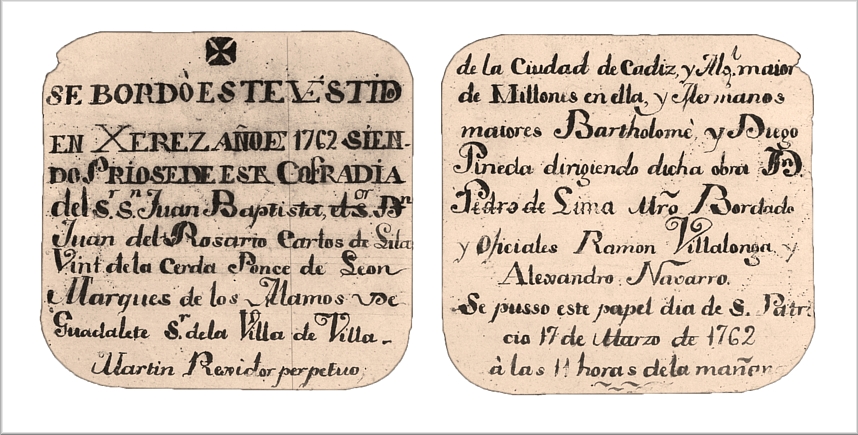 SE BORDÒ ESTE VESTID
EN XEREZ AÑO DE 1762 SIEN-
DO PRIOSTE DE ESTA COFRADIA
del S.r S.n Juan Baptista, el S.or D.n
Juan del Rosario Carlos de Lila
Vint de la Cerda Ponce de Leon
Marques de los Alamos De
Guadalete S.r de la Villa de Villa-
Martin Rexidor perpetuo
de la Ciudad de Cadiz, y Alg.l maior
de Millones en ella, y Hermanos
maiores Bartholomè, y Diego
Pineda dirigiendo dicha obra Dn.
Pedro de Lima Mro Bordado
y Oficiales Ramon Villalonga y
Alexandro Navarro.
Se pusso este papel dia de S. Patri
cio 17 de Marzo de 1762
à las 11 horas de la mañan